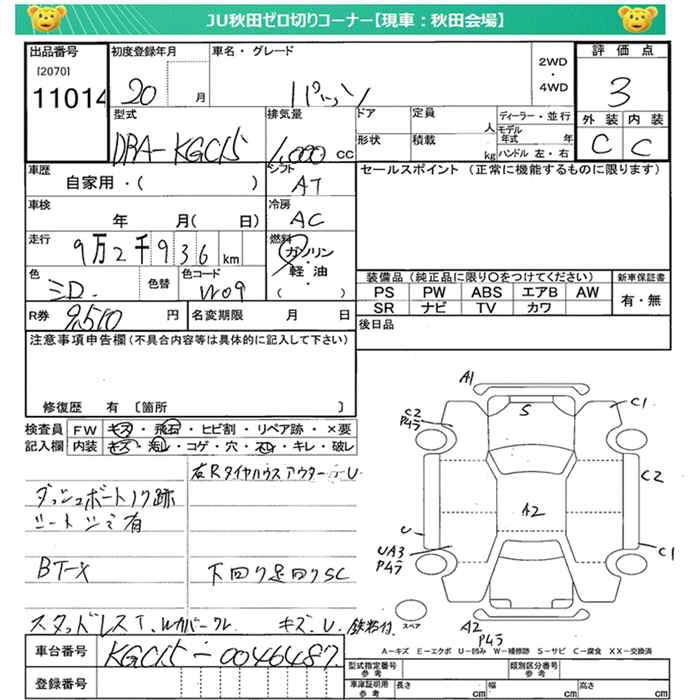 JU秋田ゼロ切りコーナー【現車:秋田会場】
出品番号 初度登録年月 車名・グレード 評価点
[2070] 11014 20 月 パッソ 2WD・4WD 3
型式 排気量 ドア 定員 人 ディーラー・並行 外装 内装
DBA-KGC15 1,000 cc 形状 積載 kg モデル年式 年 ハンドル 左・右 C C
車歴 シフト セールスポイント(正常に機能するものに限ります)
自家用・( ) AT
車検 冷房
年 月( 日) AC
走行 燃料
9万2千936km ガソリン・軽油・( )
色 色替 色コード 装備品(純正品に限り○をつけてください) 新車保証書
ミD. W09 PS PW ABS エアB AW 有・無
SR ナビ TV カワ
R券 9,510 円 名変期限 月 日 後日品
注意事項申告欄(不具合内容等は具体的に記入して下さい)
修復歴 有 〔箇所 〕
検査員 FW キズ・飛石・ヒビ割・リペア跡・×要
記入欄 内装 キズ・汚レ・コゲ・穴・スレ・キレ・破レ
右Rタイヤハウスアウター U
ダッシュボード 跡
シートシミ有
BT-X 下回り足回りSC
スタッドレスT. Wカバークレ キズ.U. 鉄粉付
A1
S
C2 P4ラ
C1
C2
A2
U
UA3 P4ラ
C1
スペア
A2 P4ラ
A-キズ E-エクボ U-凹み W-補修跡 S-サビ C-腐食 XX-交換済
車台番号 KGC15-0046487
登録番号
型式指定番号 参考 類別区分番号 参考
車庫証明用 参考 長さ cm 幅 cm 高さ cm